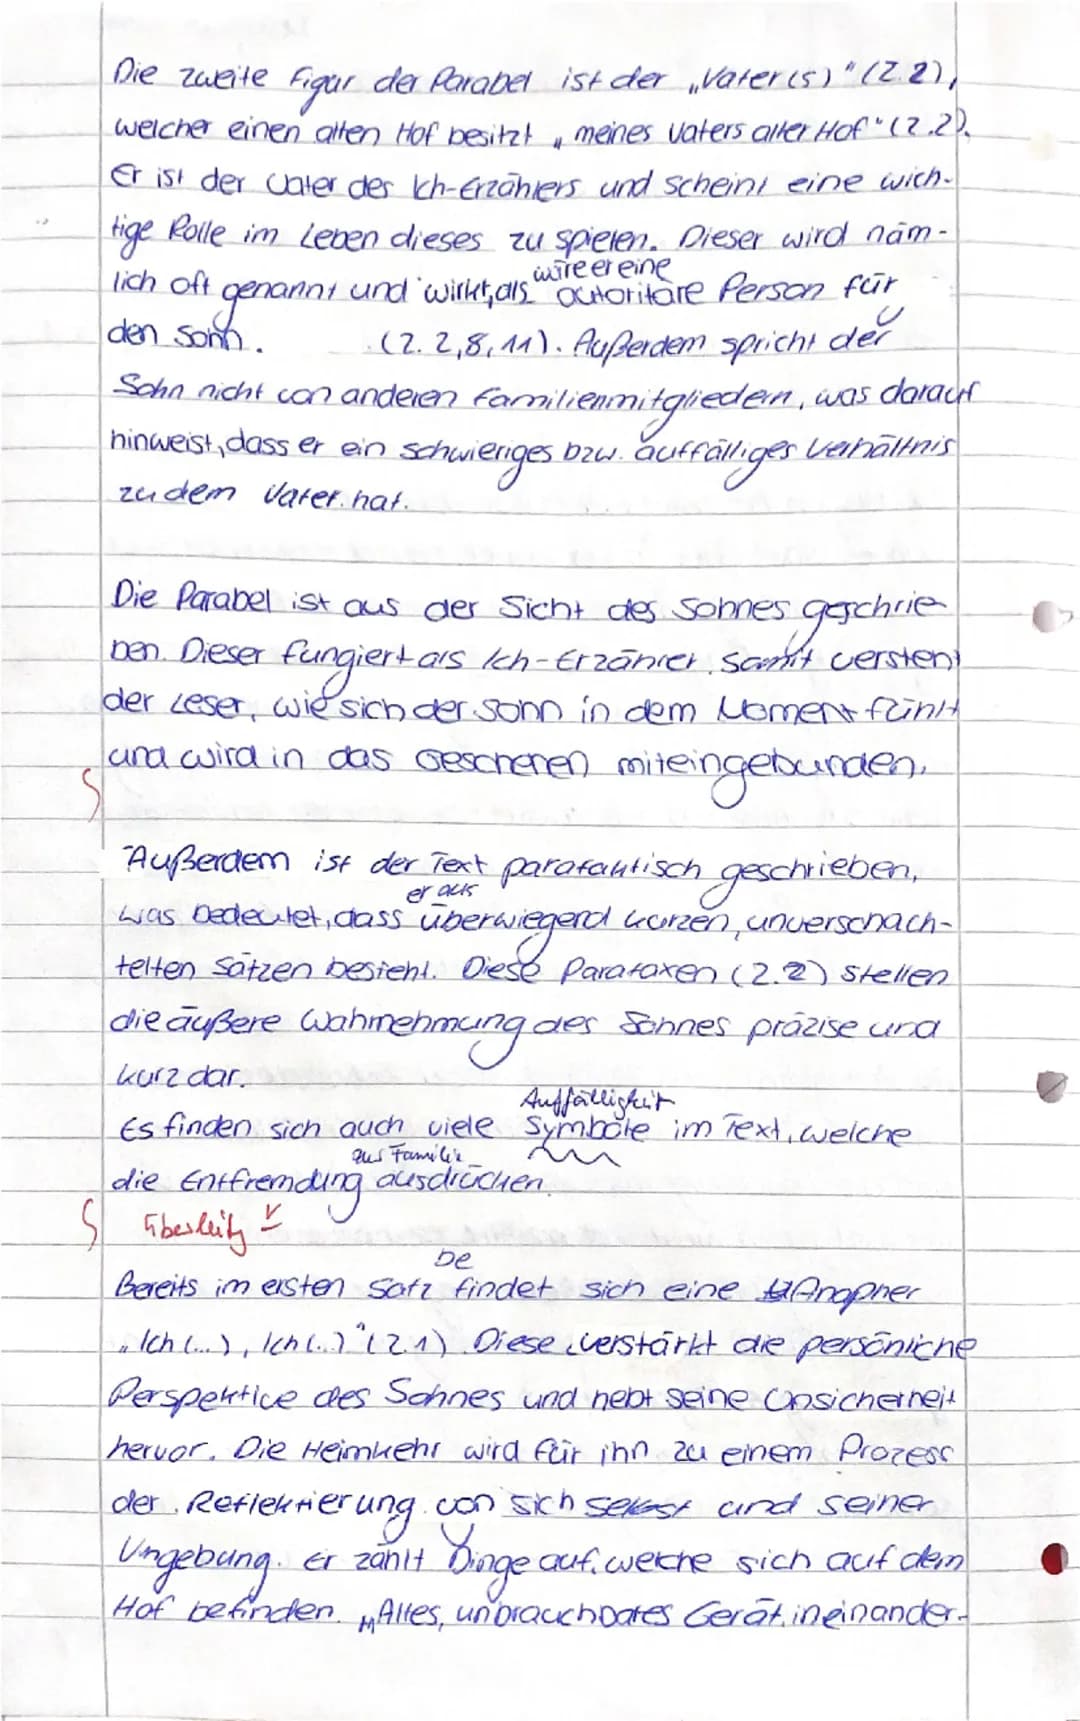 Die zweite Figur der Parabel ist der „Vater(s)" (Z.2),
welcher einen alten Hof besitzt „meines Vaters alter Hof" (Z.2).
Er ist der Vater des Ich-Erzählers und scheint eine wich-
tige Rolle im Leben dieses zu spielen. Dieser wird näm-
wäre er eine
lich oft genannt und wirkt, als autoritäre Person für
den Sohn. (Z. 2,8,11). Außerdem spricht der
Sohn nicht von anderen Familienmitgliedern, was darauf
hinweist, dass er ein schwieriges bzw. auffälliges Verhältnis
zu dem Vater hat.
Die Parabel ist aus der Sicht des Sohnes geschrie-
ben. Dieser fungiert als Ich-Erzähler. Somit versteht
der Leser, wie sich der Sohn in dem Moment fühlt
und wird in das Geschehen miteingebunden.
Außerdem ist der Text parataktisch geschrieben,
er aus
was bedeutet, dass überwiegend kurzen, unverschach-
telten Sätzen besteht. Diese Parataxen (Z.2) stellen
die äußere Wahrnehmung des Sohnes präzise und
kurz dar.
Auffälligkeit
Es finden sich auch viele Symbole im Text, welche
aus Familie
die Entfremdung ausdrücken.
Überleitg
be
Bereits im ersten Satz findet sich eine Anapher
„Ich (...), Ich (...)" (Z.1). Diese verstärkt die persönliche
Perspektive des Sohnes und hebt seine Unsicherheit
hervor. Die Heimkehr wird für ihn zu einem Prozess
der Reflektierung von sich selbst und seiner
Umgebung. Er zählt Dinge auf, welche sich auf dem
Hof befinden. „Altes, unbrauchbares Gerät, ineinander-